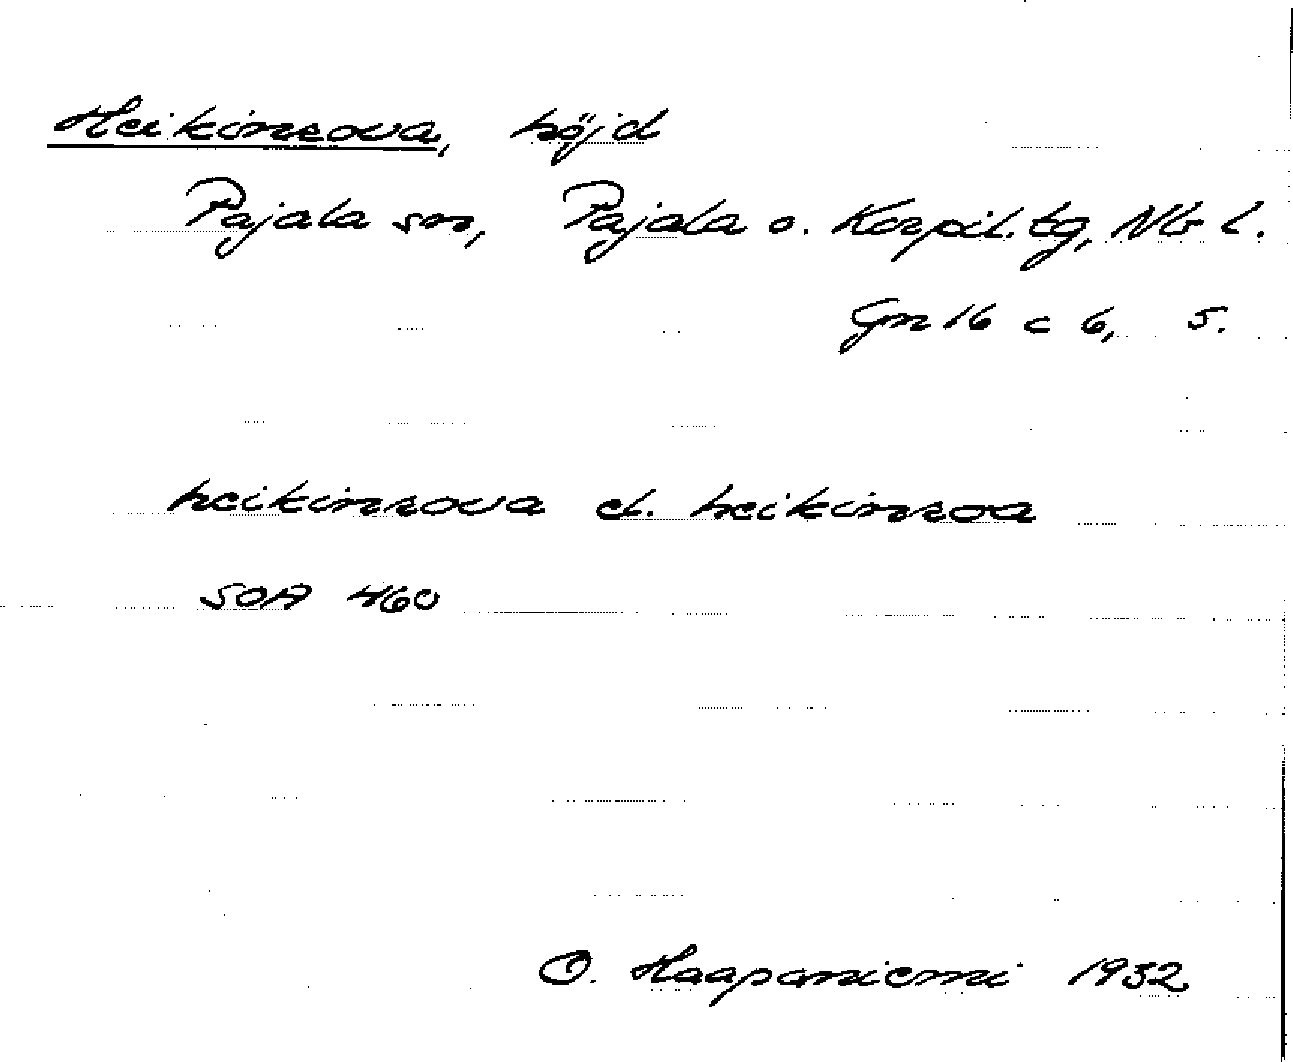 Heikinrova, höjd
Pajala sn, Pajala o. Korpil. tg, Nb l.
Gn 16 c 6, 5.
heikinrova el. heikinroa
SOA 460
O. Haapaniemi 1932